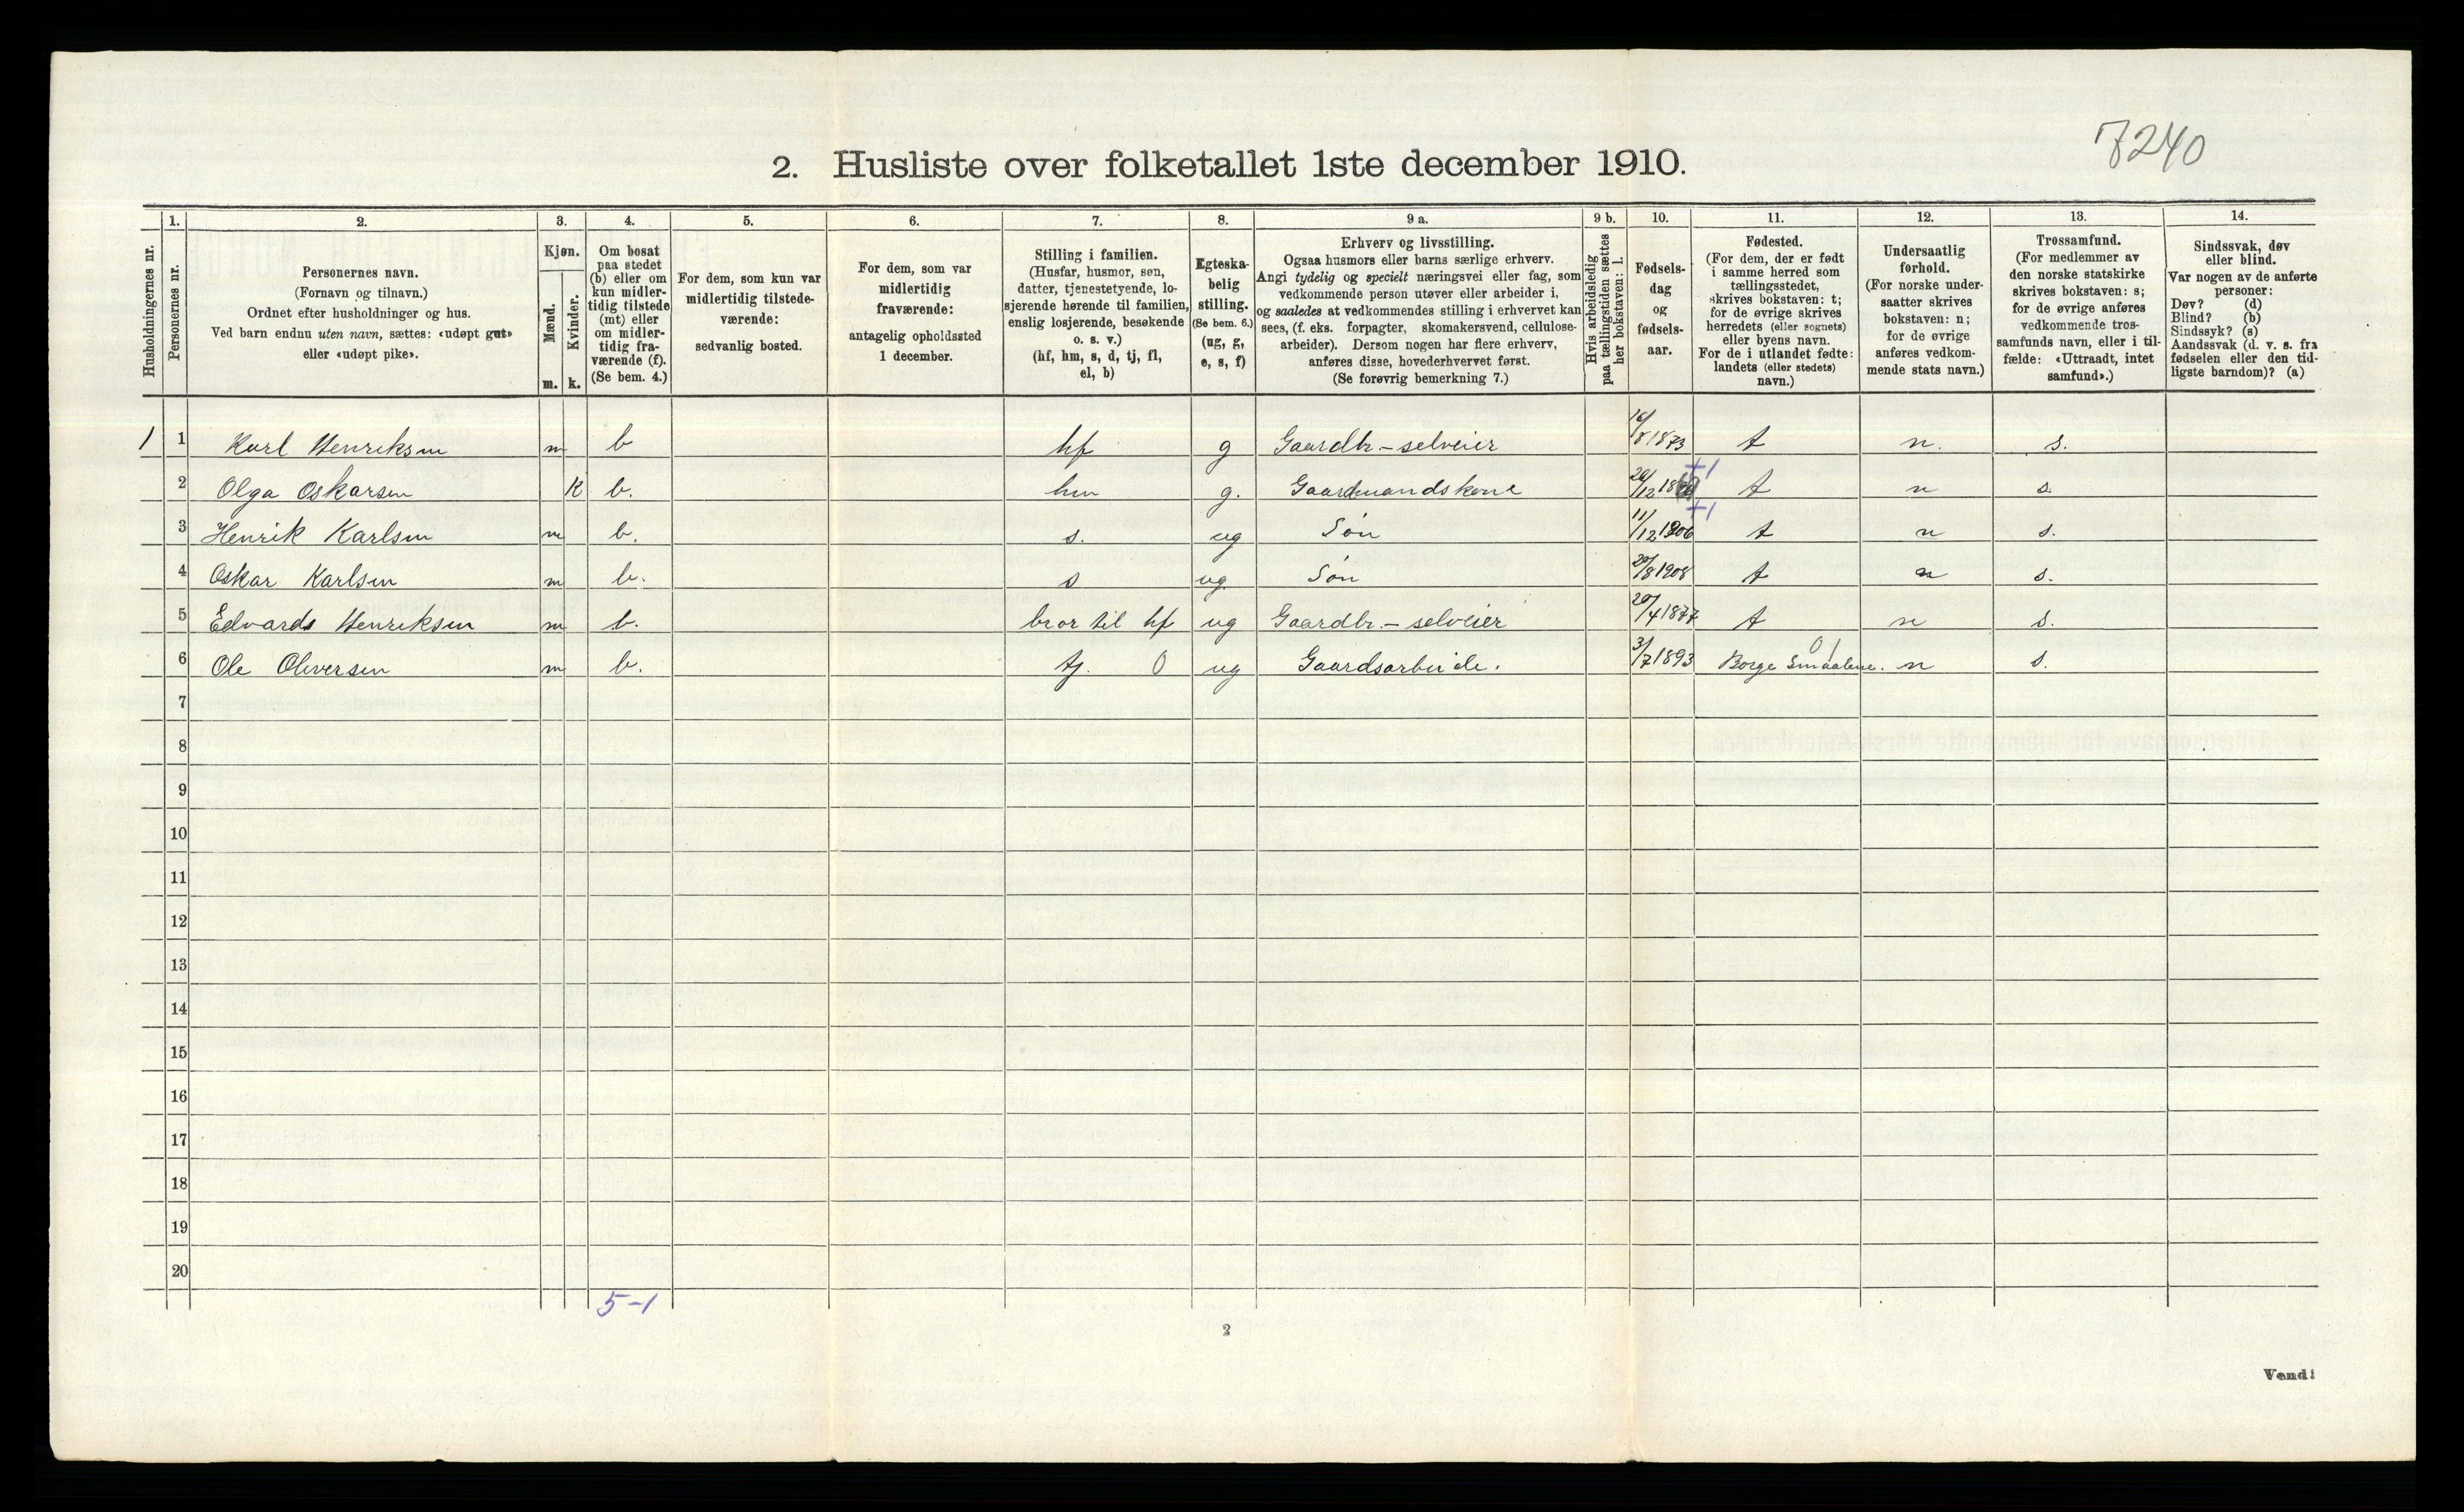 7240
2. Husliste over folketallet 1ste december 1910.
Husholdningernes nr.
1.
Personernes nr.
2.
Personernes navn.
(Fornavn og tilnavn.)
Ordnet efter husholdninger og hus.
Ved barn endnu uten navn, sættes: «udøpt gut»
eller «udøpt pike».
3.
Kjøn.
Mænd.
Kvinder.
m. k.
4.
Om bosat
paa stedet
(b) eller om
kun midler-
tidig tilstede
(mt) eller
om midler-
tidig fra-
værende (f).
(Se bem. 4.)
5.
For dem, som kun var
midlertidig tilstede-
værende:
sedvanlig bosted.
6.
For dem, som var
midlertidig
fraværende:
antagelig opholdssted
1 december.
7.
Stilling i familien.
(Husfar, husmor, søn,
datter, tjenestetyende, lo-
sjerende hørende til familien,
enslig losjerende, besøkende
o. s. v.)
(hf, hm, s, d, tj, fl,
el, b)
8.
Egteska-
belig
stilling.
(Se bem. 6.)
(ug, g,
e, s, f)
9 a.
Erhverv og livsstilling.
Ogsaa husmors eller barns særlige erhverv.
Angi tydelig og specielt næringsvei eller fag, som
vedkommende person utøver eller arbeider i,
og saaledes at vedkommendes stilling i erhvervet kan
sees, (f. eks. forpagter, skomakersvend, cellulose-
arbeider). Dersom nogen har flere erhverv,
anføres disse, hovederhvervet først.
(Se forøvrig bemerkning 7.)
9 b.
Hvis arbeidsledig
paa tællingstiden sættes
her bokstaven: l.
10.
Fødsels-
dag
og
fødsels-
aar.
11.
Fødested.
(For dem, der er født
i samme herred som
tællingsstedet,
skrives bokstaven: t;
for de øvrige skrives
herredets (eller sognets)
eller byens navn.
For de i utlandet fødte:
landets (eller stedets)
navn.)
12.
Undersaatlig
forhold.
(For norske under-
saatter skrives
bokstaven: n;
for de øvrige
anføres vedkom-
mende stats navn.)
13.
Trossamfund.
(For medlemmer av
den norske statskirke
skrives bokstaven: s;
for de øvrige anføres
vedkommende tros-
samfunds navn, eller i til-
fælde: «Uttraadt, intet
samfund».)
14.
Sindssvak, døv
eller blind.
Var nogen av de anførte
personer:
Døv? (d)
Blind? (b)
Sindssyk? (s)
Aandssvak (d. v. s. fra
fødselen eller den tid-
ligste barndom)? (a)
1 1 Karl Henriksen m b hf g Gaardbr.-selveier 16/8 1873 t n. s.
2 Olga Oskarsen K b. hm g. Gaardmandskone /12 t n s.
3 Henrik Karlsen m b. s. ug Søn 11/12 1906 t n s.
4 Oskar Karlsen m b. s ug. Søn 1908 t n s.
5 Edvards Henriksen m b. bror til hf ug Gaardbr.-selveier 20/4 1877 t n s.
6 Ole Oliversen m b. tj. 0 ug Gaardsarbeide. 3/7 1893 Borge Smaalene. 01 n s.
7
8
9
10
11
12
13
14
15
16
17
18
19
20
5-1
2
Vend!